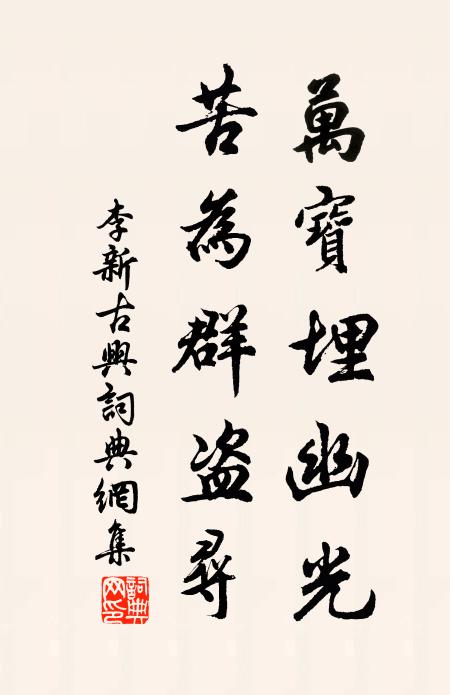 萬寶埋幽光
苦為群盗尋
李新古興詞典網集
詞典网印